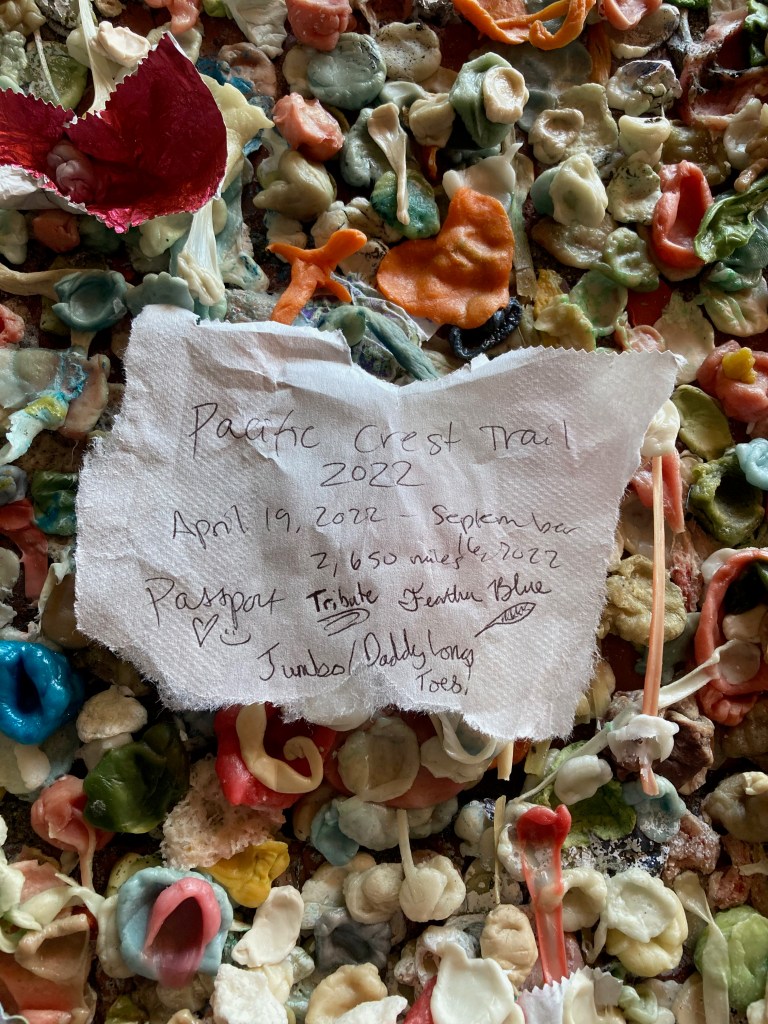 Pacific Crest Trail
2022
April 19, 2022 - September
16, 2022
2,650 miles
Passport Tribute Feather Blue
Jumbo/Daddy Long
Toes